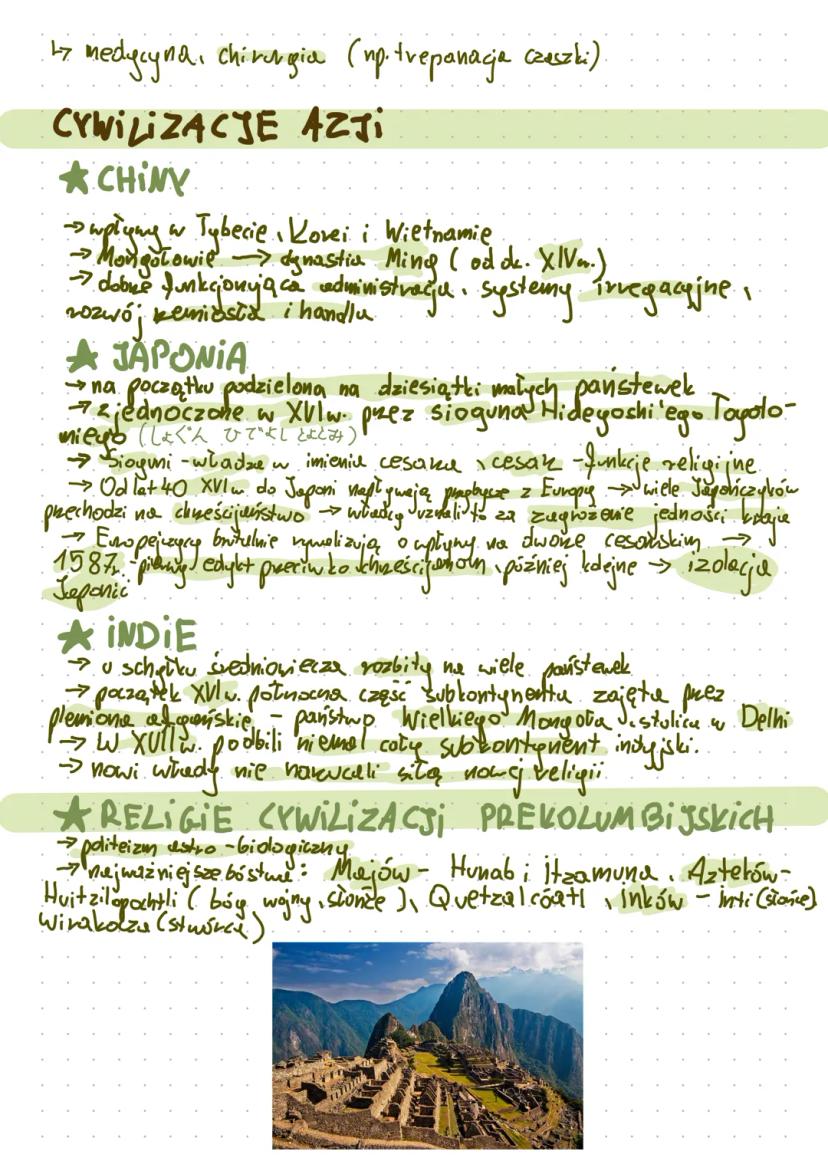 ↳ medycyna, chirurgia (np. trepanacja czaszki)
CYWILIZACJE AZJI
★ CHINY
→ wpływy w Tybecie, Korei i Wietnamie
→ Mongołowie → dynastia Ming (od dr. XIV w.)
→ dobrze funkcjonująca administracja, systemy irygacyjne,
rozwój rzemiosła i handlu
★ JAPONIA
→ na początku podzielona na dziesiątki małych państewek
→ zjednoczone w XVI w. przez sioguna Hideyoshi'ego Toyoto-
miego (しょぐん ひでよし とよとみ)
→ Sioguni - władza w imieniu cesarza, cesarz - funkcje religijne
→ Od lat 40 XVI w. do Japoni napływają przybysze z Europy → wiele Japończyków
przechodzi na chrześcijaństwo → władcy uznali to za zagrożenie jedności kraju
→ Europejczycy brutalnie rywalizują o wpływy na dworze cesarskim →
1587r. - pierwszy edykt przeciwko chrześcijanom, później kolejne → izolacja
Japonii
★ INDIE
→ u schyłku średniowiecza rozbity na wiele państewek
→ początek XVI w. północna część subkontynentu zajęta przez
plemiona afgańskie - państwo Wielkiego Mongoła, stolica w Delhi
→ W XVII w. podbili niemal cały subkontynent indyjski.
→ nowi władcy nie narzucali siłą nowej religii
★ RELIGIE CYWILIZACJI PREKOLUMBIJSKICH
→ politeizm astro-biologiczny
→ najważniejsze bóstwa: Majów - Hunab i Itzamuna, Azteków -
Huitzilopochtli (bóg wojny, słońce), Quetzalcóatl, Inków - Inti (słońce)
Wirakocza (stwórca)